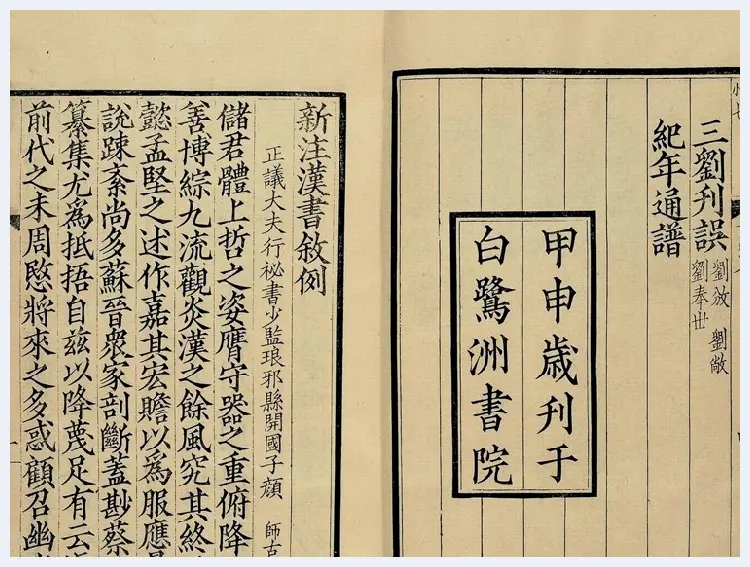 三劉刊誤 劉攽 劉敞
劉奉丗
紀年通譜
甲申歳刊于
白鷺洲書院
新注漢書敘例
正議大夫行祕書少監琅邪縣開國子顔 師古
儲君體上哲之姿膺守器之重俯降
善博綜九流觀炎漢之餘風究其終
懿孟堅之述作嘉其宏贍以爲服應
說踈紊尚多蘇晉衆家剖斷蓋尠蔡
纂集尤爲抵捂自兹以降蔑足有云
前代之未周愍將來之多惑顧召幽